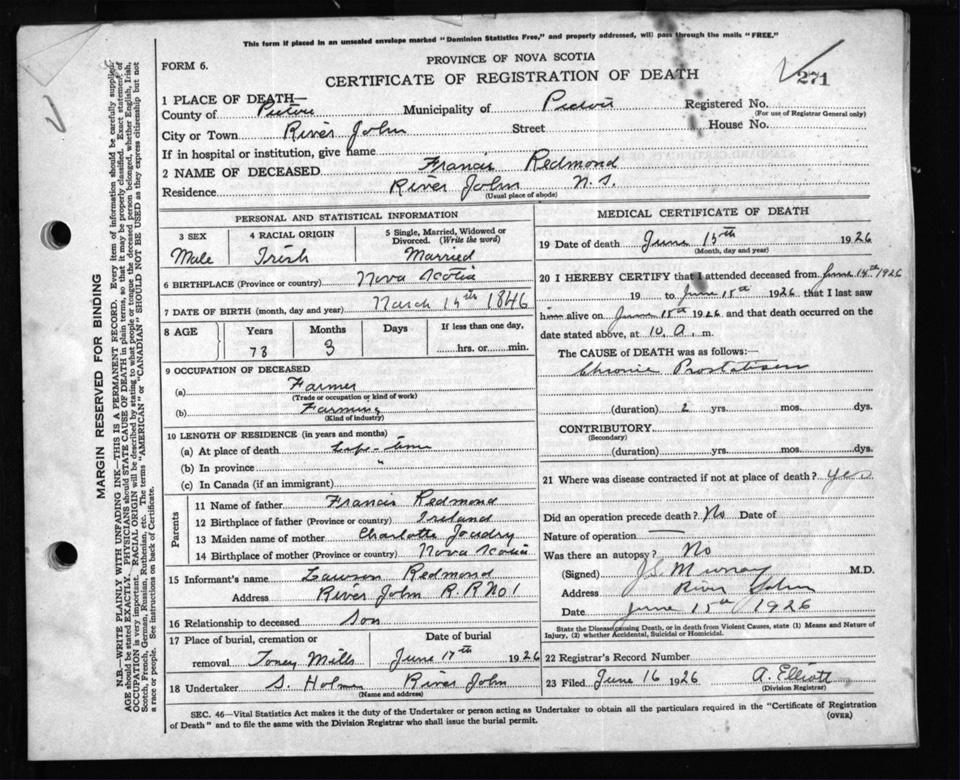 This form if placed in an unsealed envelope marked "Dominion Statistics Free," and property addressed, will pass through the mails "FREE."
FORM 6.
PROVINCE OF NOVA SCOTIA
CERTIFICATE OF REGISTRATION OF DEATH
271
1 PLACE OF DEATH—
County of Pictou Municipality of Pictou Registered No.
(For use of Registrar General only)
City or Town River John Street House No.
If in hospital or institution, give name
2 NAME OF DECEASED Francis Redmond
Residence River John N.S.
(Usual place of abode)
PERSONAL AND STATISTICAL INFORMATION
3 SEX 4 RACIAL ORIGIN 5 Single, Married, Widowed or Divorced. (Write the word)
Male Irish Married
6 BIRTHPLACE (Province or country) Nova Scotia
7 DATE OF BIRTH (month, day and year) March 15th 1846
8 AGE Years Months Days If less than one day,
73 3 hrs. or min.
9 OCCUPATION OF DECEASED
(a) Farmer
(Trade or occupation or kind of work)
(b) Farming
(Kind of industry)
10 LENGTH OF RESIDENCE (in years and months)
(a) At place of death Life-time
(b) In province "
(c) In Canada (if an immigrant)
Parents
11 Name of father Francis Redmond
12 Birthplace of father (Province or country) Ireland
13 Maiden name of mother Charlotte Joudry
14 Birthplace of mother (Province or country) Nova Scotia
15 Informant's name Lawson Redmond
Address River John R.R No 1
16 Relationship to deceased Son
17 Place of burial, cremation or Date of burial
removal Toney Mills June 17th 1926
18 Undertaker S. Holmes River John
(Name and address)
MEDICAL CERTIFICATE OF DEATH
19 Date of death June 15th 1926
(Month, day and year)
20 I HEREBY CERTIFY that I attended deceased from June 14th 1926
19 to June 15th 1926 that I last saw
him alive on June 15th 1926 and that death occurred on the
date stated above, at 10. A. m.
The CAUSE OF DEATH was as follows:—
Chronic
(duration) 2 yrs. mos. dys.
CONTRIBUTORY
(Secondary)
(duration) yrs. mos. dys.
21 Where was disease contracted if not at place of death? Yes
Did an operation precede death? No Date of
Nature of operation —
Was there an autopsy? No
(Signed) J.S. Murray M.D.
Address River John
Date June 15th 1926
State the Disease causing Death, or in death from Violent Causes, state (1) Means and Nature of
Injury, (2) whether Accidental, Suicidal or Homicidal.
22 Registrar's Record Number
23 Filed June 16 1926 A. Elliott
(Division Registrar)
SEC. 46—Vital Statistics Act makes it the duty of the Undertaker or person acting as Undertaker to obtain all the particulars required in the "Certificate of Registration
of Death" and to file the same with the Division Registrar who shall issue the burial permit.
(OVER)
MARGIN RESERVED FOR BINDING
N.B.—WRITE PLAINLY WITH UNFADING INK—THIS IS A PERMANENT RECORD. Every item of information should be carefully supplied.
AGE should be stated EXACTLY. PHYSICIANS should STATE CAUSE OF DEATH in plain terms, so that it may be properly classified. Exact statement of
OCCUPATION is very important. RACIAL ORIGIN will be described by stating to what people or tongue the deceased person belonged, whether English, Irish,
Scotch, French, German, Russian, Ruthenian, etc. The terms "AMERICAN" or "CANADIAN" SHOULD NOT BE USED as they express citizenship but not
a race or people. See instructions on back of Certificate.